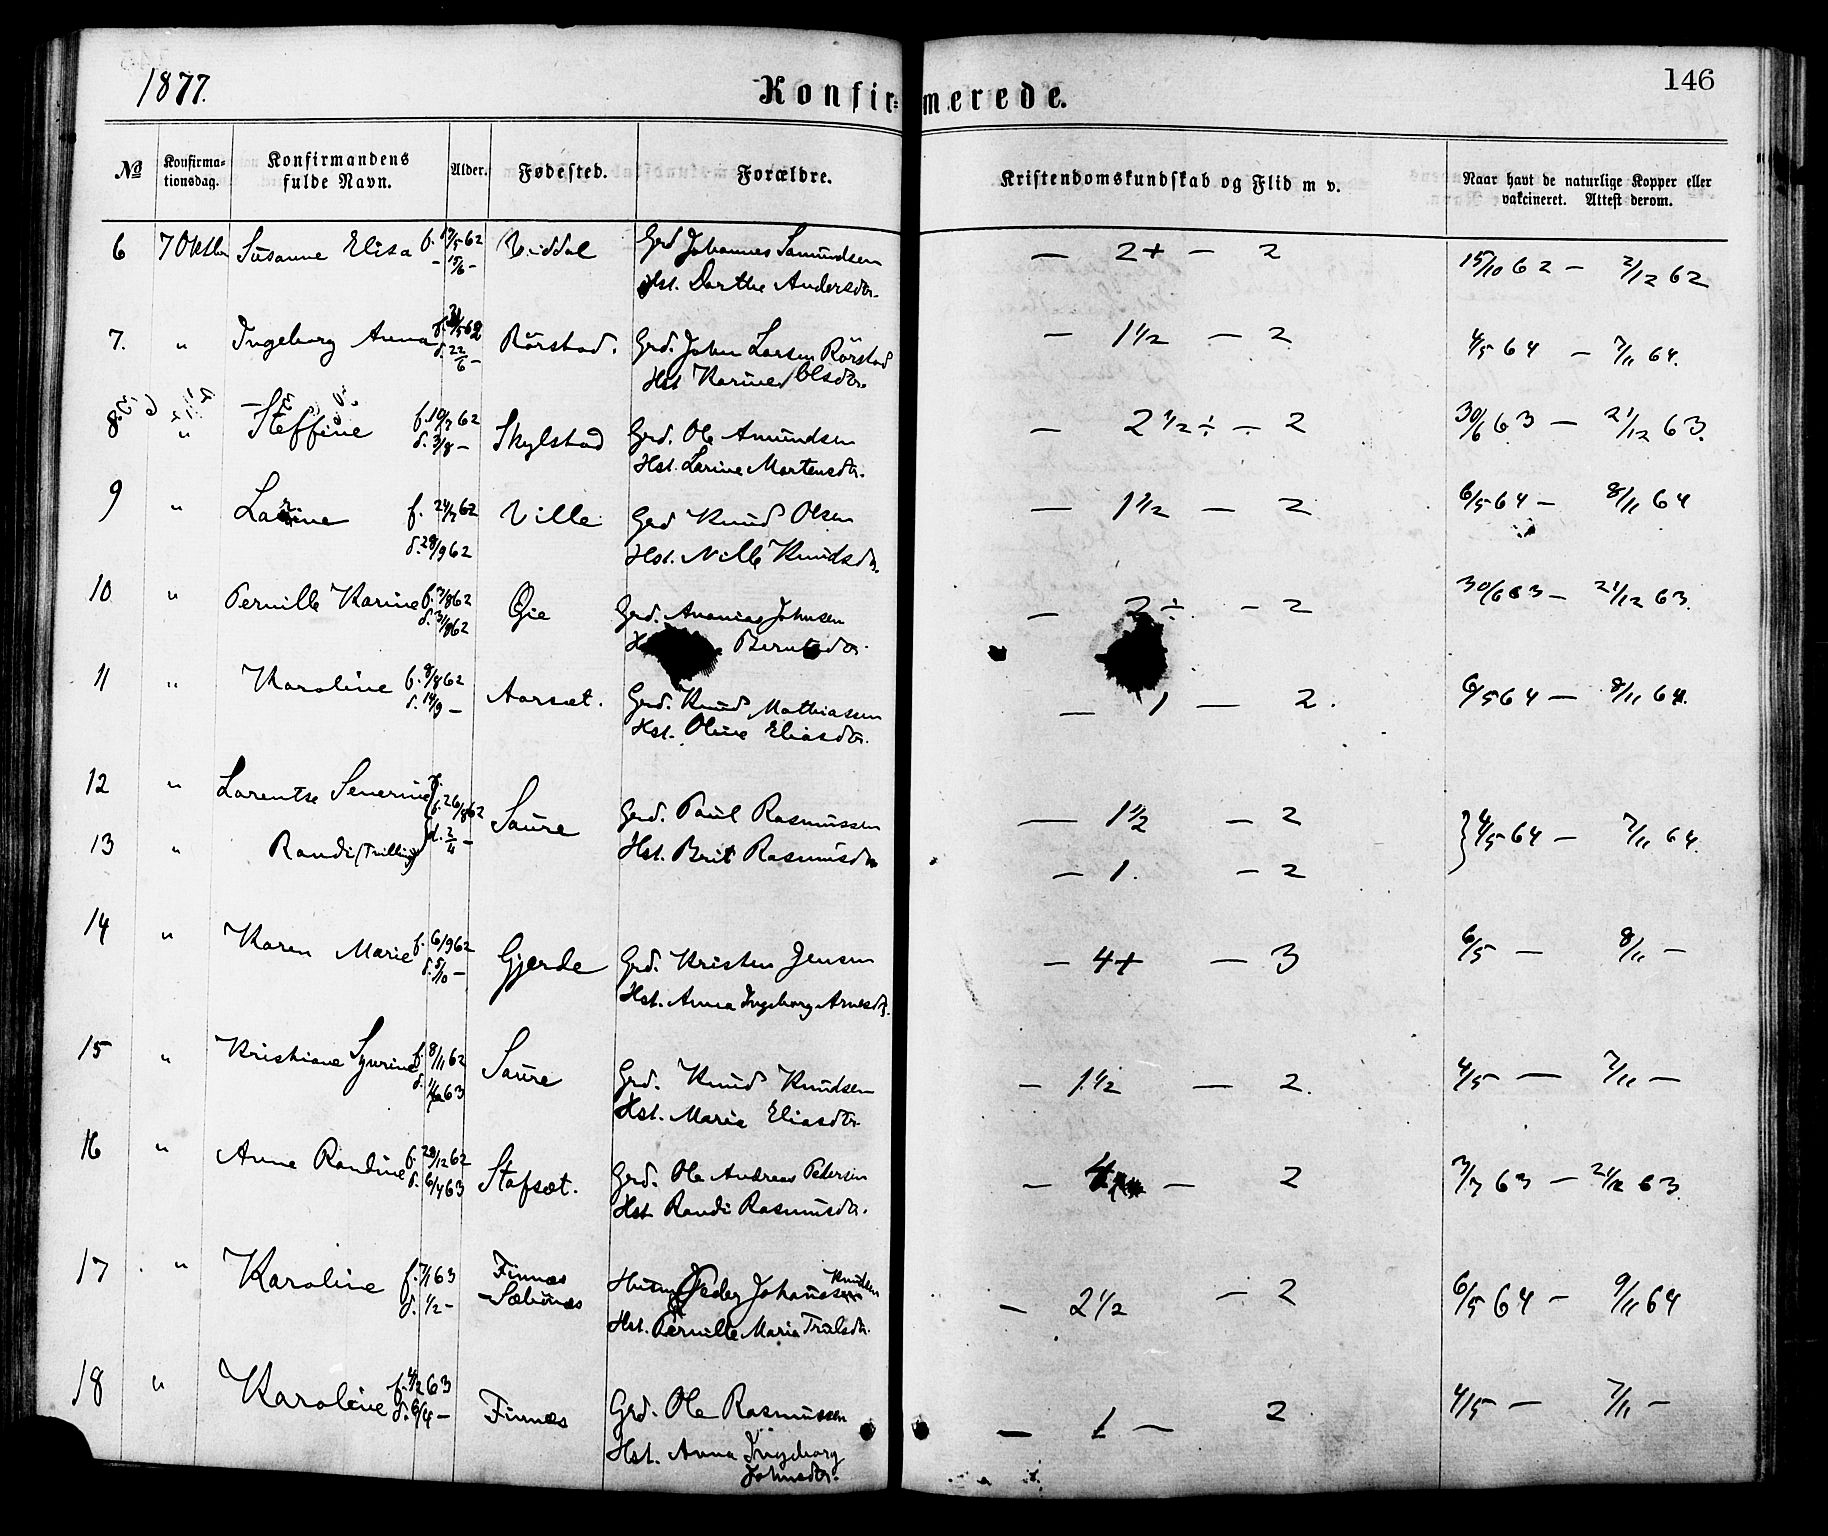 1877.
Konfirmerede.
146
No
Konfirma-
tionsdag.
Konfirmandens
fulde Navn.
Alder.
Fødested.
Forældre.
Kristendomskundskab og Flid m v.
Naar havt de naturlige Kopper eller
vakcineret. Attest derom.
6 7 Oktbr Susanne Elisa f. 17/5 62 Viddal Grd Johannes Samundsen — 2+ — 2 15/10 62 — 2/12 62
15/6 — Hst. Dorthe Andersdtr.
7. " Ingeborg Anna 62 Rörstad. Grd. John Larsen Rörstad — 1½ — 2 4/5 64 — 7/11 64.
d. 22/6 — Hst Karine Olsdtr.
8. " Steffine f. 10/7 62 Skylstad Grd. Ole Amundsen — 2½ ÷ — 2 30/6 63 — 21/12 63.
d. 3/8 — Hst. Larine Martensdtr.
9 " Larine f. 24/7 62 Ville Grd Knud Olsen — 1½ — 2 6/5 64 — 8/11 64
d. 28/9 62 Hst. Nille Knudsdtr.
10 " Pernille Karine f. 3/8 62 Øie Grd. Ananias Johnsen — 2 ÷ — 2 30/6 63 — 21/12 63.
d. 31/8 62 Berntsdtr.
11 " Karoline f. 8/8 62 Aarsæt. Grd. Knud Mathiassen — 1 — 2. 6/5 64 — 8/11 64.
d. 14/9 — Hst. Oline Eliasdtr.
12 " Larentse Severine f. 26/8 62 Saure Grd. Paul Rasmussen — 1½ — 2 } 4/5 64 — 7/11 64.
13 " Randi (Trilling) d. 2/11 — Hst. Brit Rasmusdtr — 1. — 2
14 " Karen Marie f. 6/9 62 Gjerde Grd. Kristen Jensen — 4+ — 3 6/5 — 8/11 —
d. 5/10 — Hst. Anna Ingeborg Arnesdtr.
15 " Kristiane Syverine f. 8/11 62 Saure Grd. Knud Knudsen — 1½ — 2. 4/5 — 7/11 —
63 Hst. Marie Eliasdtr.
16 " Anne Randine f. 29/12 62 Stafsæt. Grd. Ole Andreas Petersen — 4 — 2 3/7 63 — 21/12 63.
d. 6/4 63 Hst. Randi Rasmusdtr.
17. " Karoline f. 7/1 63 Finnæs Peder Johan Knudsen — 2½ — 2 6/5 64 — 9/11 64
d. 1/2 — Sæbönæs Hst. Pernille Marie Trulsdtr.
18 " Karoline f. 4/2 63 Finnæs Grd. Ole Rasmussen — 1 — 2 4/5 — 7/11 —
d. 6/4 — Hst. Anna Ingeborg
Johnsdtr.